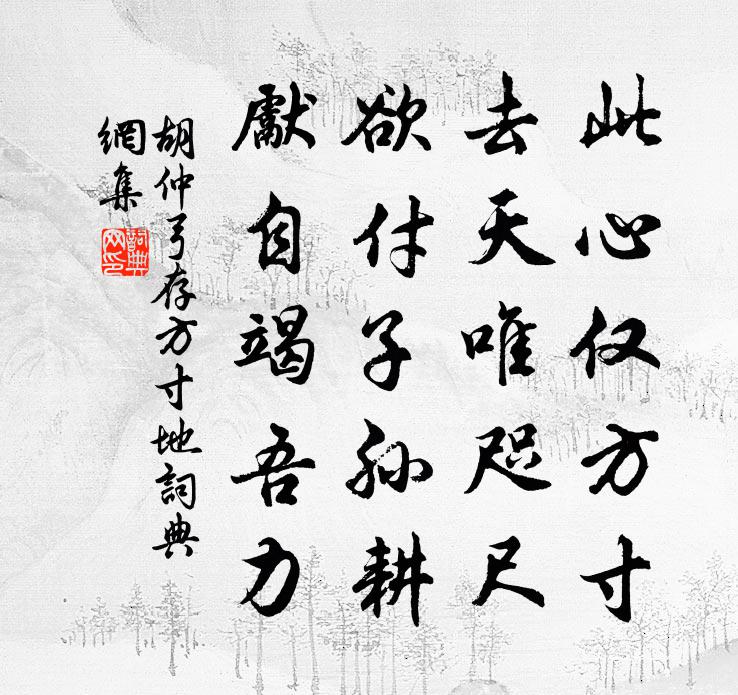 此心仅方寸
去天唯咫尺
欲付子孙耕
厭自竭吾力
胡仲弓存方寸地詞典
網集
詞典網印